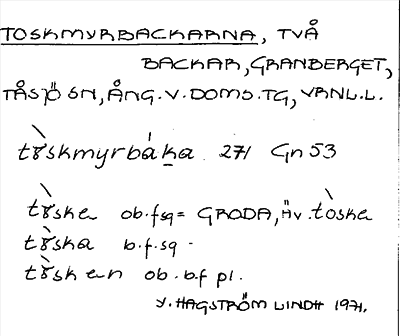 TOSKMYRBACKARNA, TVÅ
BACKAR, GRANBERGET,
TÅSJÖ SN, ÅNG. V. DOMS. TG, VRNL. L.
tɤ̀skmyrbáka 271 Gn 53
tɤ̀ske ob. f sg = GRODA, ÄV. tòska
tɤ̀ska b. f. sg -
tɤ̀sken ob. b.f pl.
Y. HAGSTRÖM LINDH 1971.